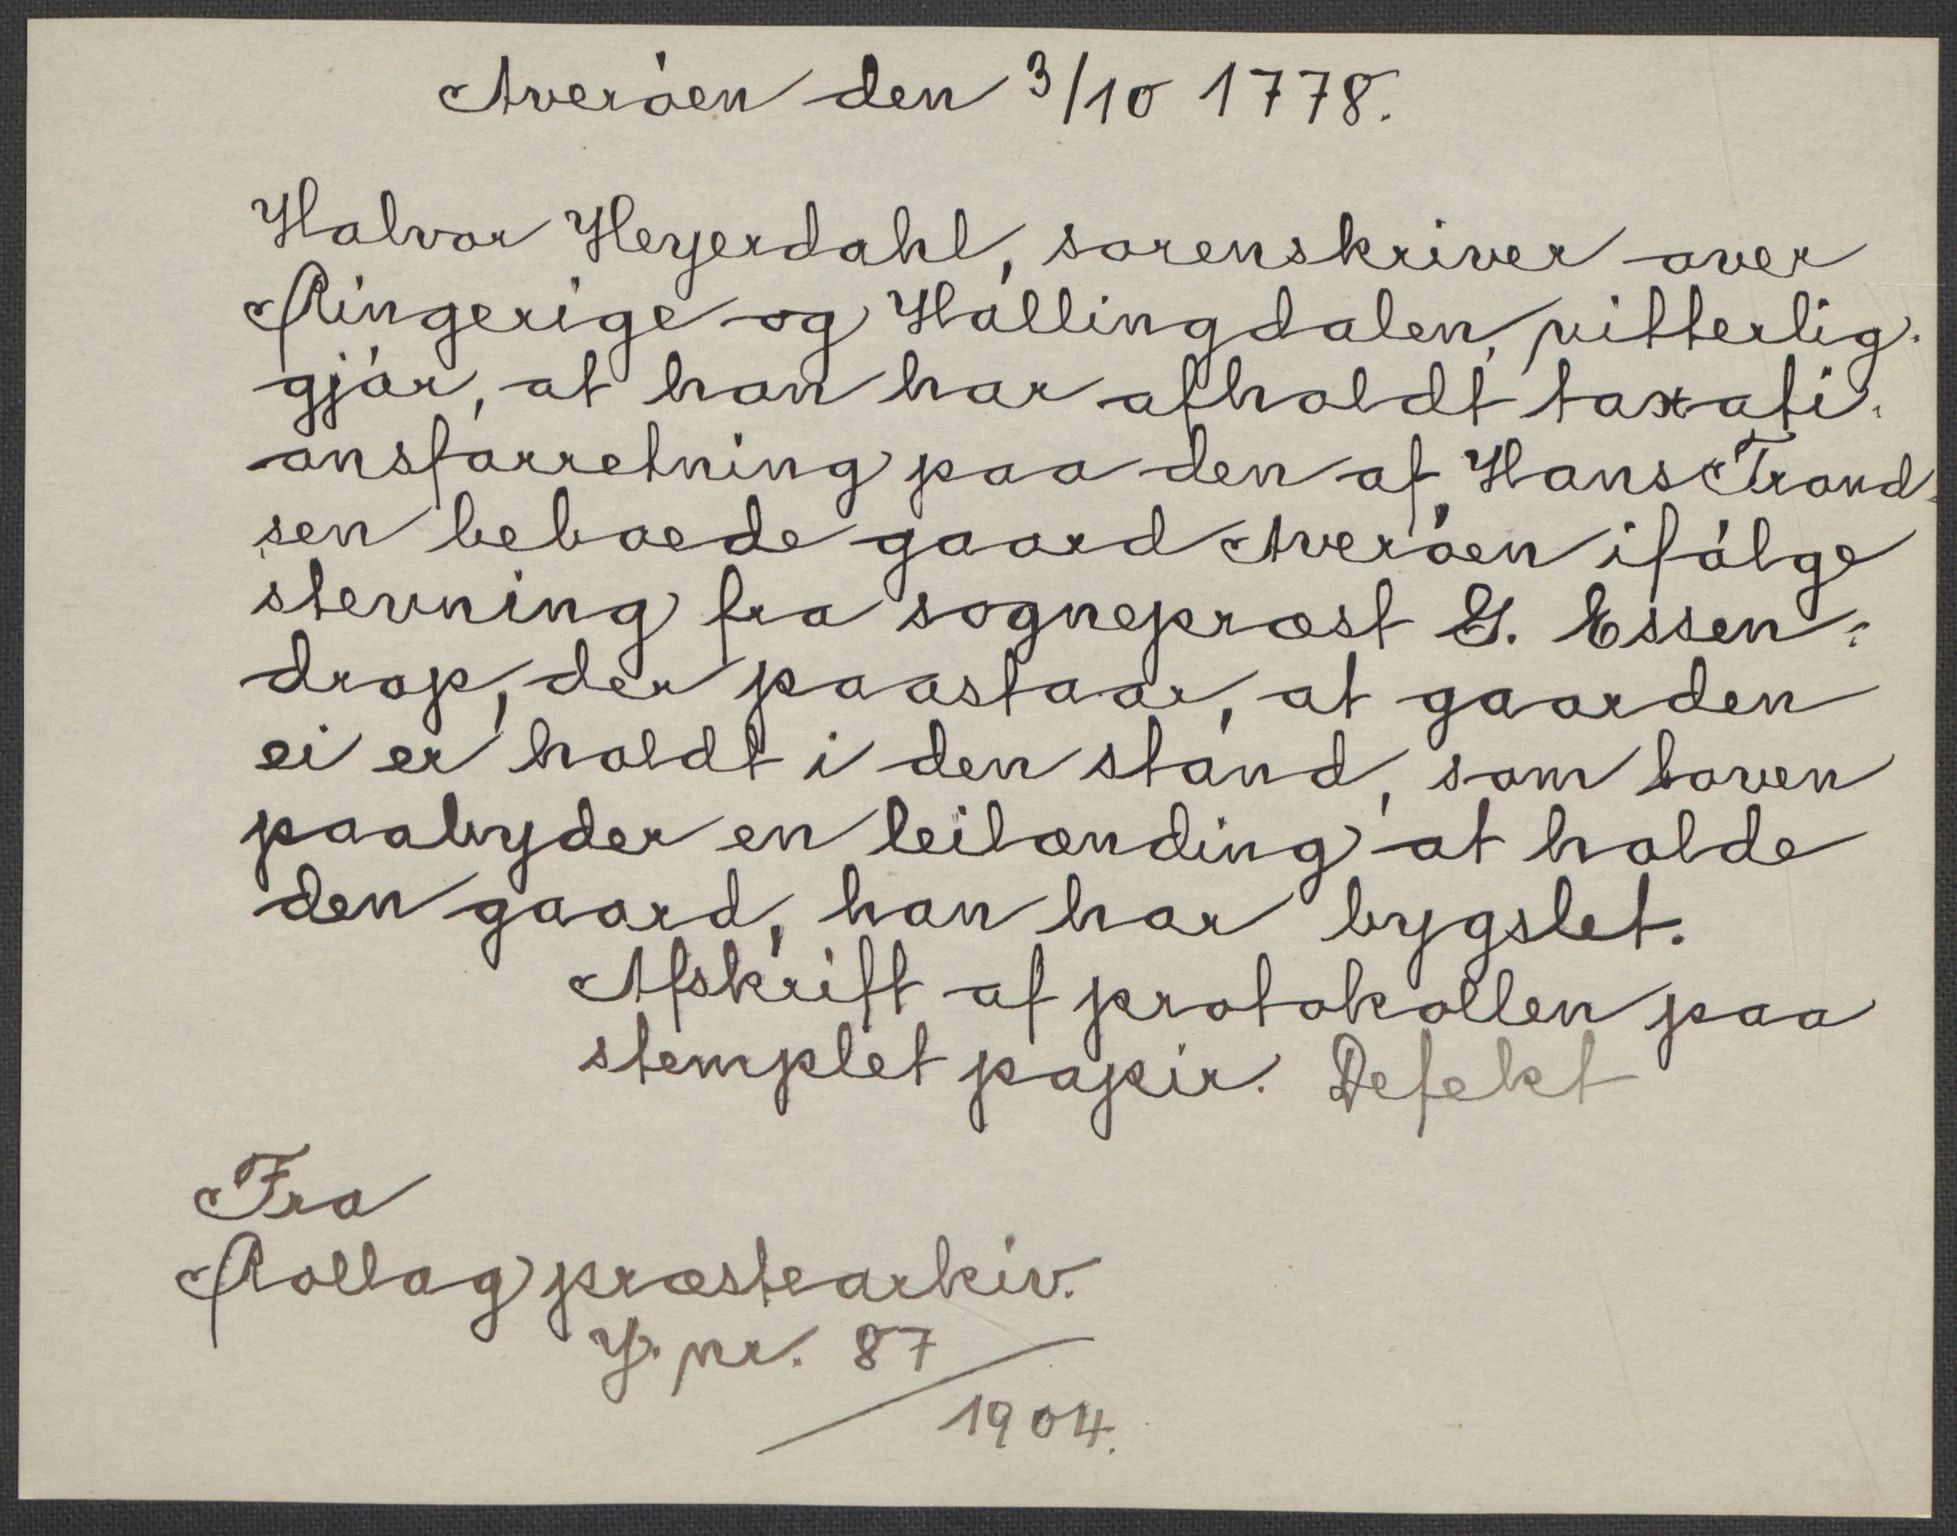 Averøen den 3/10 1778.
Halvor Heyerdahl, sorenskriver over
Ringerige og Hallingdalen, vitterlig-
gjør, at han har afholdt taxati-
onsforretning paa den af Hans Trond-
sen beboede gaard Averøen ifølge
stevning fra sognepræst G. Essen-
drop, der paastaar, at gaarden
ei er holdt i den stand, som loven
paabyder en leilænding at holde
den gaard, han har bygslet.
Afskrift af protokollen paa
stemplet papir. Defekt
Fra
Rollag præstearkiv.
J. nr. 87
/1904.